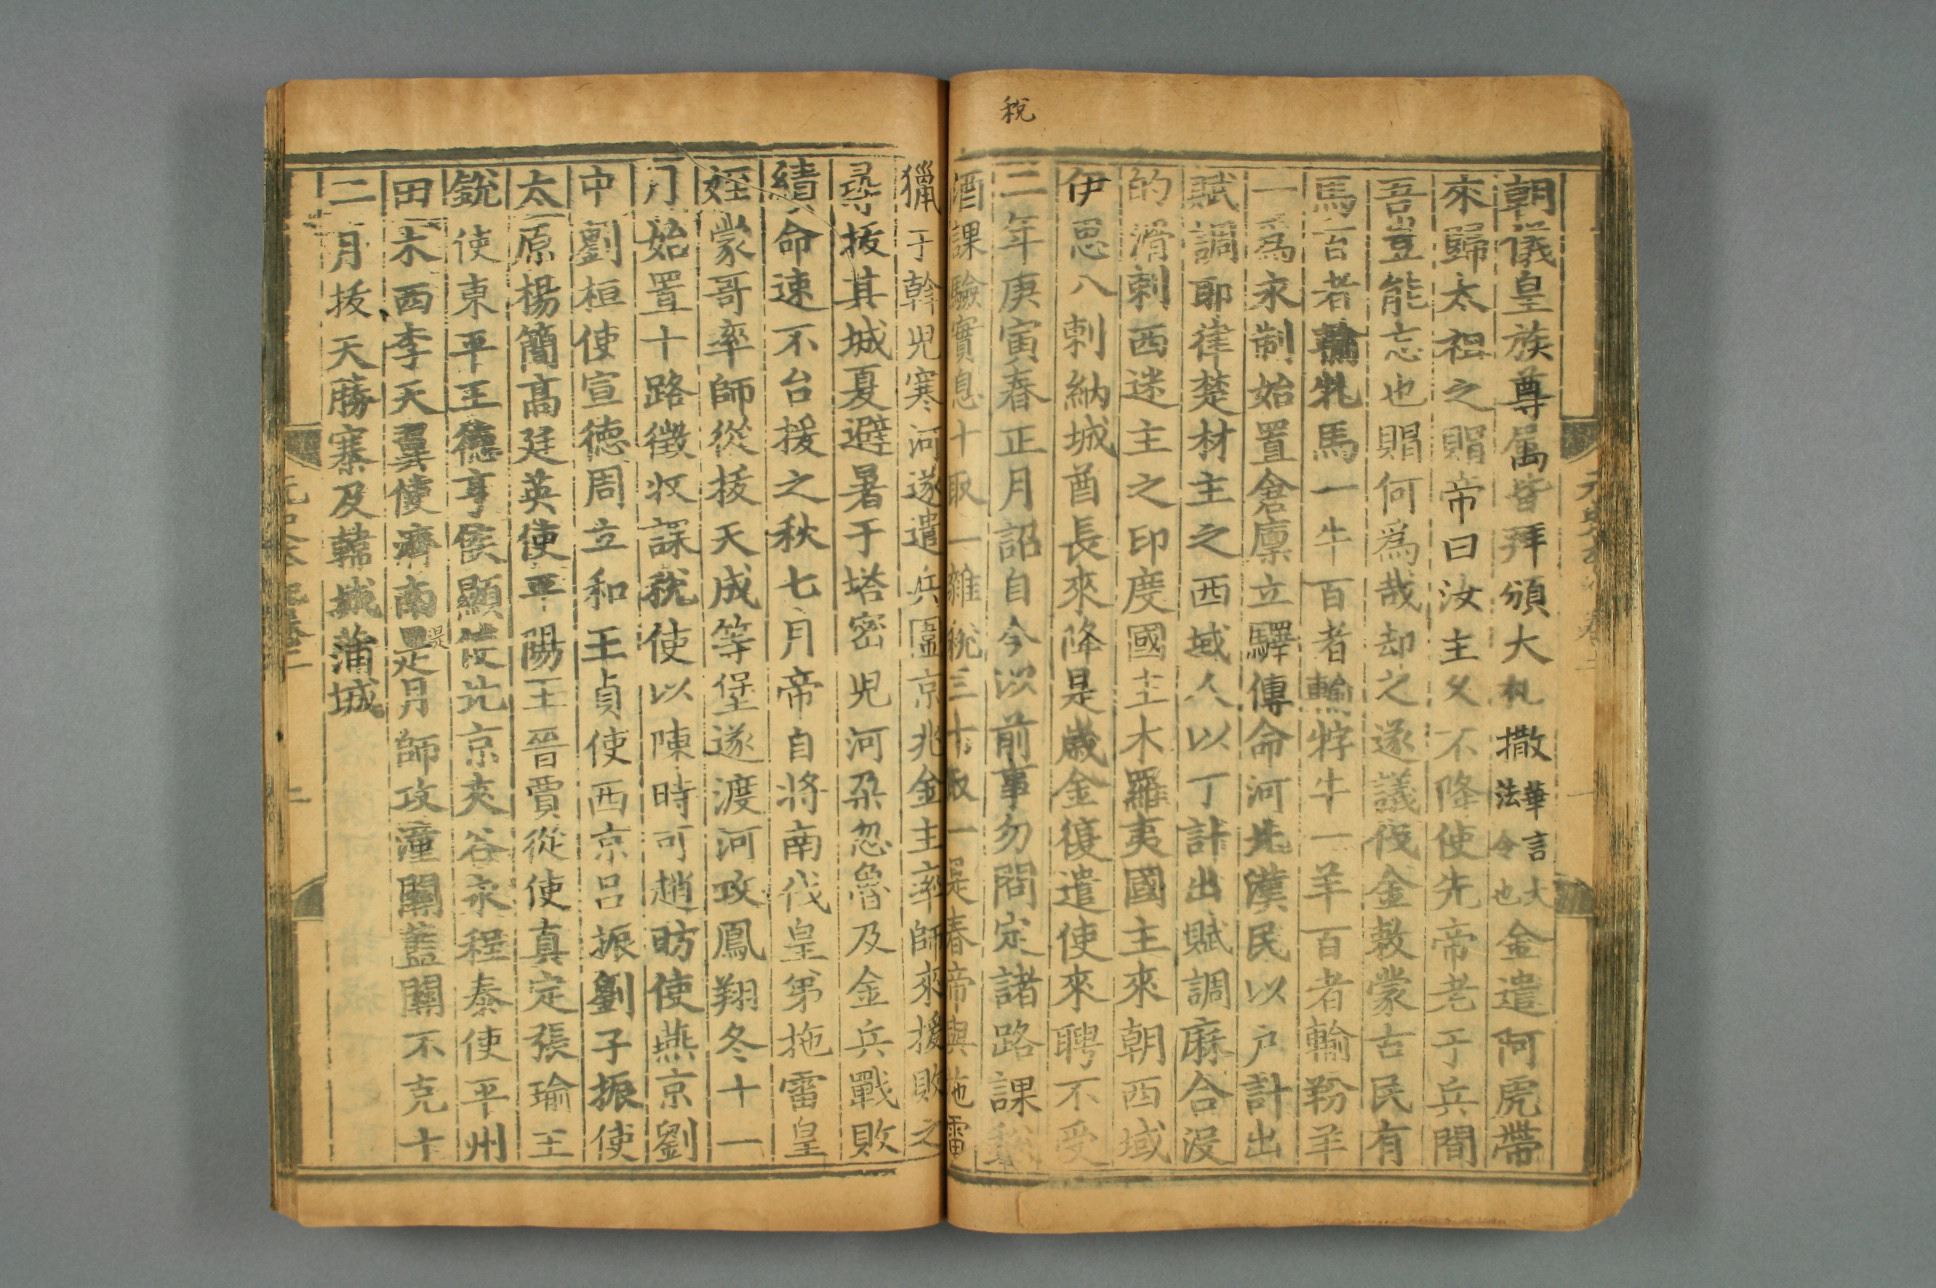 税
朝儀皇族尊屬皆拜頒大札撒華言大法令也金遣阿虎帶
來歸太祖之賵帝曰汝主久不降使先帝老于兵間
吾豈能忘也賵何爲哉却之遂議伐金敕蒙古民有
馬百者輸牝馬一牛百者輸牸牛一羊百者輸羒羊
一爲永制始置倉廩立驛傳命河北漢民以戶計出
賦調耶律楚材主之西域人以丁計出賦調麻合没
的滑剌西迷主之印度國主木羅夷國主來朝西域
伊思八剌納城酋長來降是歲金復遣使來聘不受
二年庚寅春正月詔自今以前事勿問定諸路課稅
酒課驗實息十取一雜稅三十取一是春帝與拖雷
獵于斡兒寒河遂遣兵圍京兆金主率師來援敗之
尋拔其城夏避暑于塔密兒河朶忽魯及金兵戰敗
績命速不台援之秋七月帝自將南伐皇弟拖雷皇
姪蒙哥率師從拔天成等堡遂渡河攻鳳翔冬十一
月始置十路徵收課稅使以陳時可趙昉使燕京劉
中劉桓使宣德周立和王貞使西京吕振劉子振使
太原楊簡高廷英使平陽王晉賈從使真定張瑜王
銳使東平王德亨侯顯使北京夾谷永程泰使平州
田木西李天翼使濟南是月師攻潼關藍關不克十
二月拔天勝寨及韓城蒲城